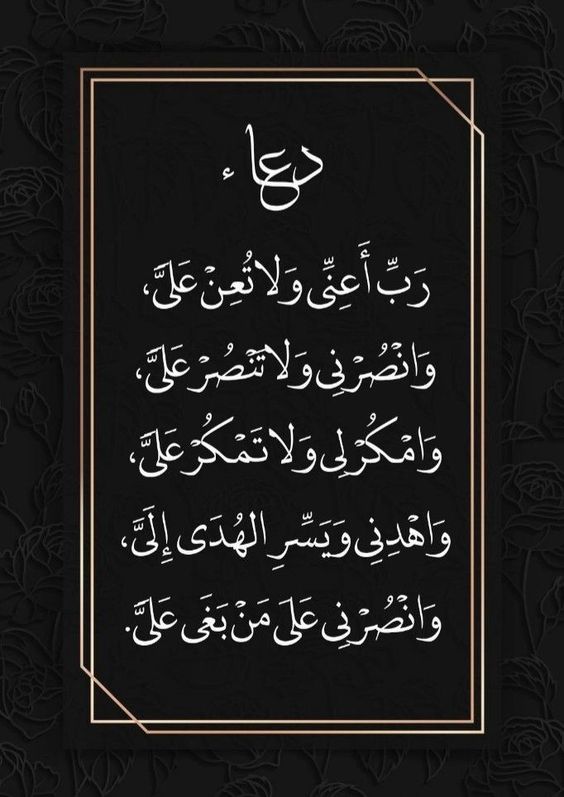 دعاء
رَبِّ أَعِنِّى وَلَا تُعِنْ عَلَىَّ،
وَانْصُرْنِى وَلَا تَنْصُرْ عَلَىَّ،
وَامْكُرْ لِى وَلَا تَمْكُرْ عَلَىَّ،
وَاهْدِنِى وَيَسِّرِ الهُدَى إِلَىَّ،
وَانْصُرْنِى عَلَى مَنْ بَغَى عَلَىَّ.